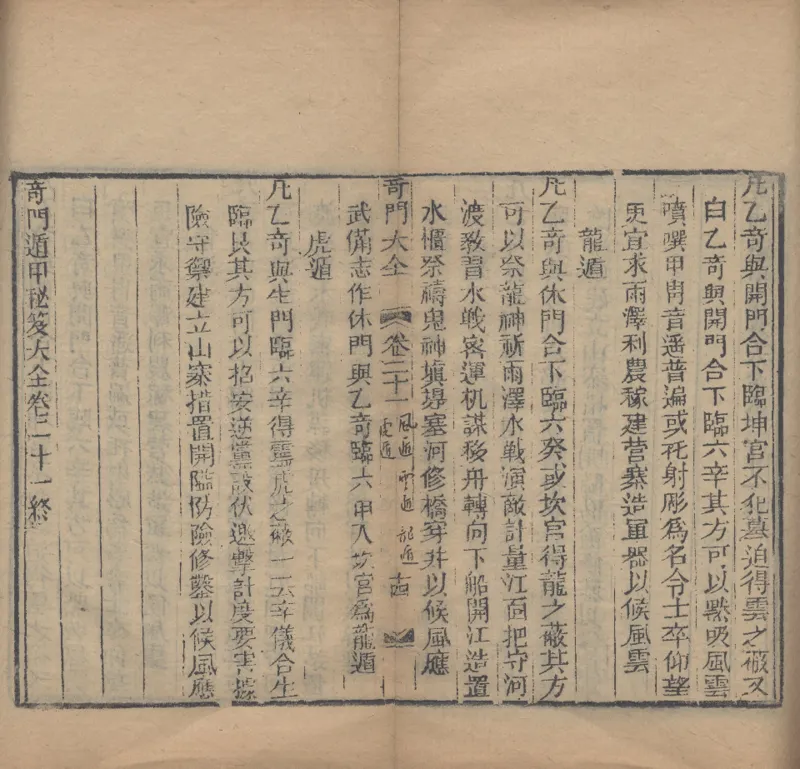 凡乙奇與開門合下臨坤宮不犯墓迫得雲之蔽又
白乙奇與開門合下臨六辛其方可以默吸風雲
噴噀甲冑音遥普遍或托射彫為名令士卒仰望
更宜求雨澤利農稼建营寨造軍器以候風雲
龍遁
凡乙奇與休門合下臨六癸或坎宮得龍之蔽其方
可以祭龍神祈雨澤水戦演敵計量江面把守河
渡教習水戦密運机謀移舟轉向下船開江造置
水櫃祭禱鬼神塡堤塞河修橋穿井以候風應
奇門大全 卷二十一 風遁 雲遁 龍遁 虎遁
武備志作休門與乙奇臨六甲入坎宮為龍遁
虎遁
凡乙奇與生門臨六辛得雲虎之蔽一云辛儀合生
臨艮其方可以招安逆黨設伏邀擊計度要害據
險守禦建立山寨措置開隘防險修鑿以候風應
奇門遁甲秘笈大全卷二十一終